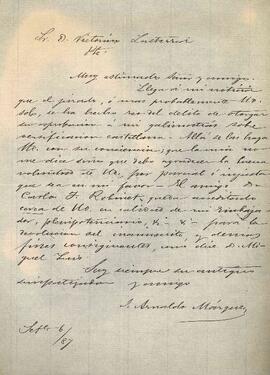 Sr. D. Victorino Lastarria
Pte.
Muy estimado Señor y amigo:
Llega á mi noticia
que el jurado, ó mas probablemente Ud.
solo, se ha hecho reo del delito de otorgar
su aprobacion á mi galimatías sobre
versificacion castellana. Allá se las haga
Ud. con su conciencia; que la mia no
me dice sino que debo agradecer la buena
voluntad de Ud., por parcial é injusta
que sea en mi favor. El amigo Dn.
Carlos F. Robinet, queda acreditado
cerca de Ud. en calidad de mi Embaja
dor, plenipotenciario, &. &. para la
devolucion del manuscrito y demas
fines consiguientes, como dice D. Mi
guel Luis
Soy siempre su antiguo
simpatizador y amigo
J. Arnaldo Márquez
Setbe 6/
87